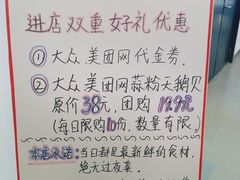 进店双重好礼优惠
①大众.美团网代金券.
②大众.美团网蒜粉天鹅贝
原价38元,团购19.9元
(每日限购10份,数量有限.)
本店承诺:当日都是最新鲜的食材,
绝无过夜菜.